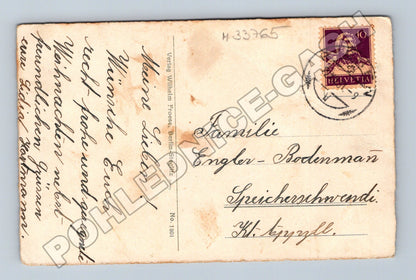 H 33765
10
HELVETIA
Meine Lieben!
Wünsche Euch
recht frohe und gesunde
Weihnachten nebst
freundlichen Grüssen
eure Lidia Hartmann.
Verlag Wilhelm Fronse, Berlin
No. 1301
Familie
Engler-Bodenmañ
Speicherschwendi.
Kt. Appzll.
POHLEDNICE-GASH